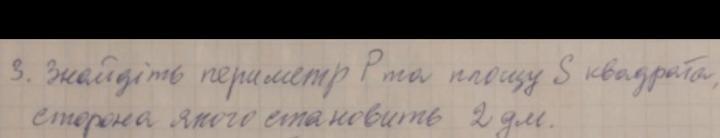 3. Знайдіть периметр P та площу S квадрата,
сторона якого становить 2 дм.